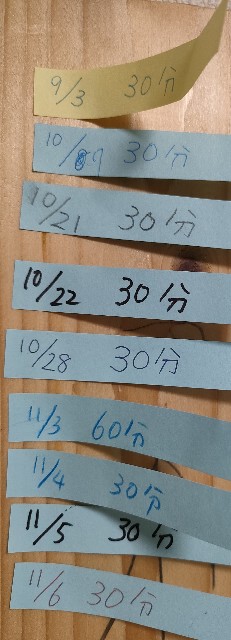 9/3 30分
10/9 30分
10/21 30分
10/22 30分
10/28 30分
11/3 60分
11/4 30分
11/5 30分
11/6 30分